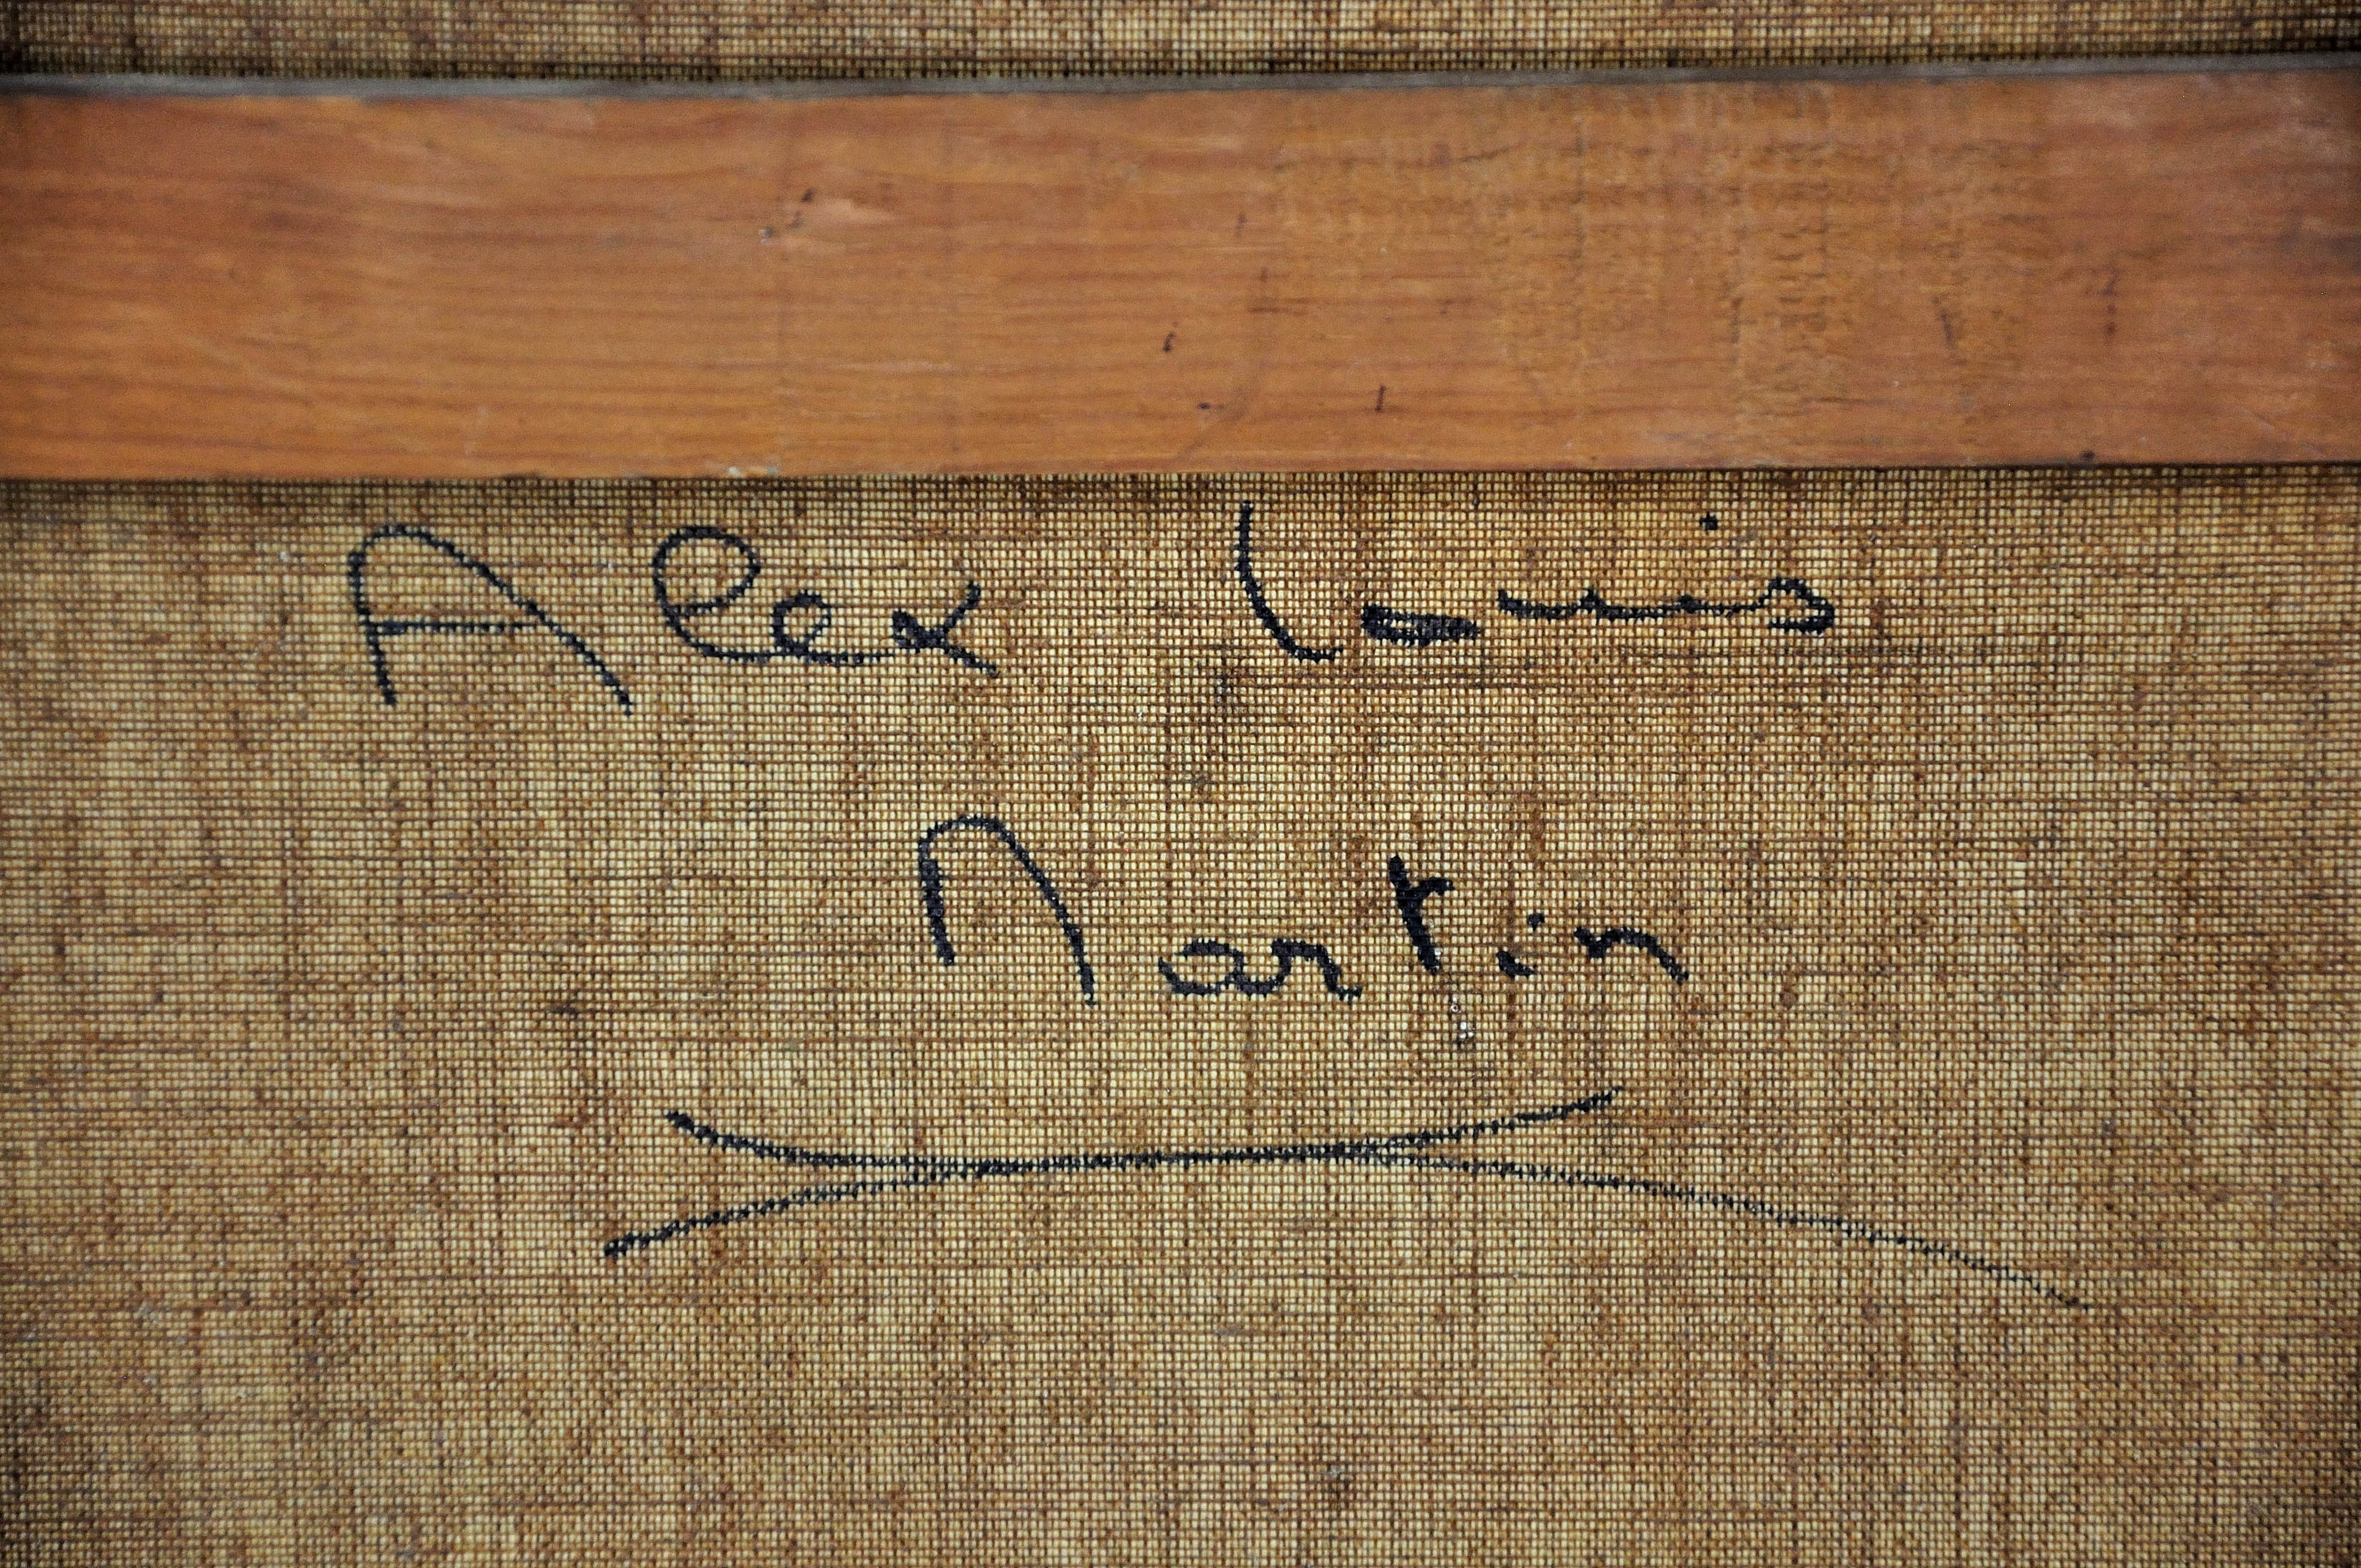 Alex Luis
Martin